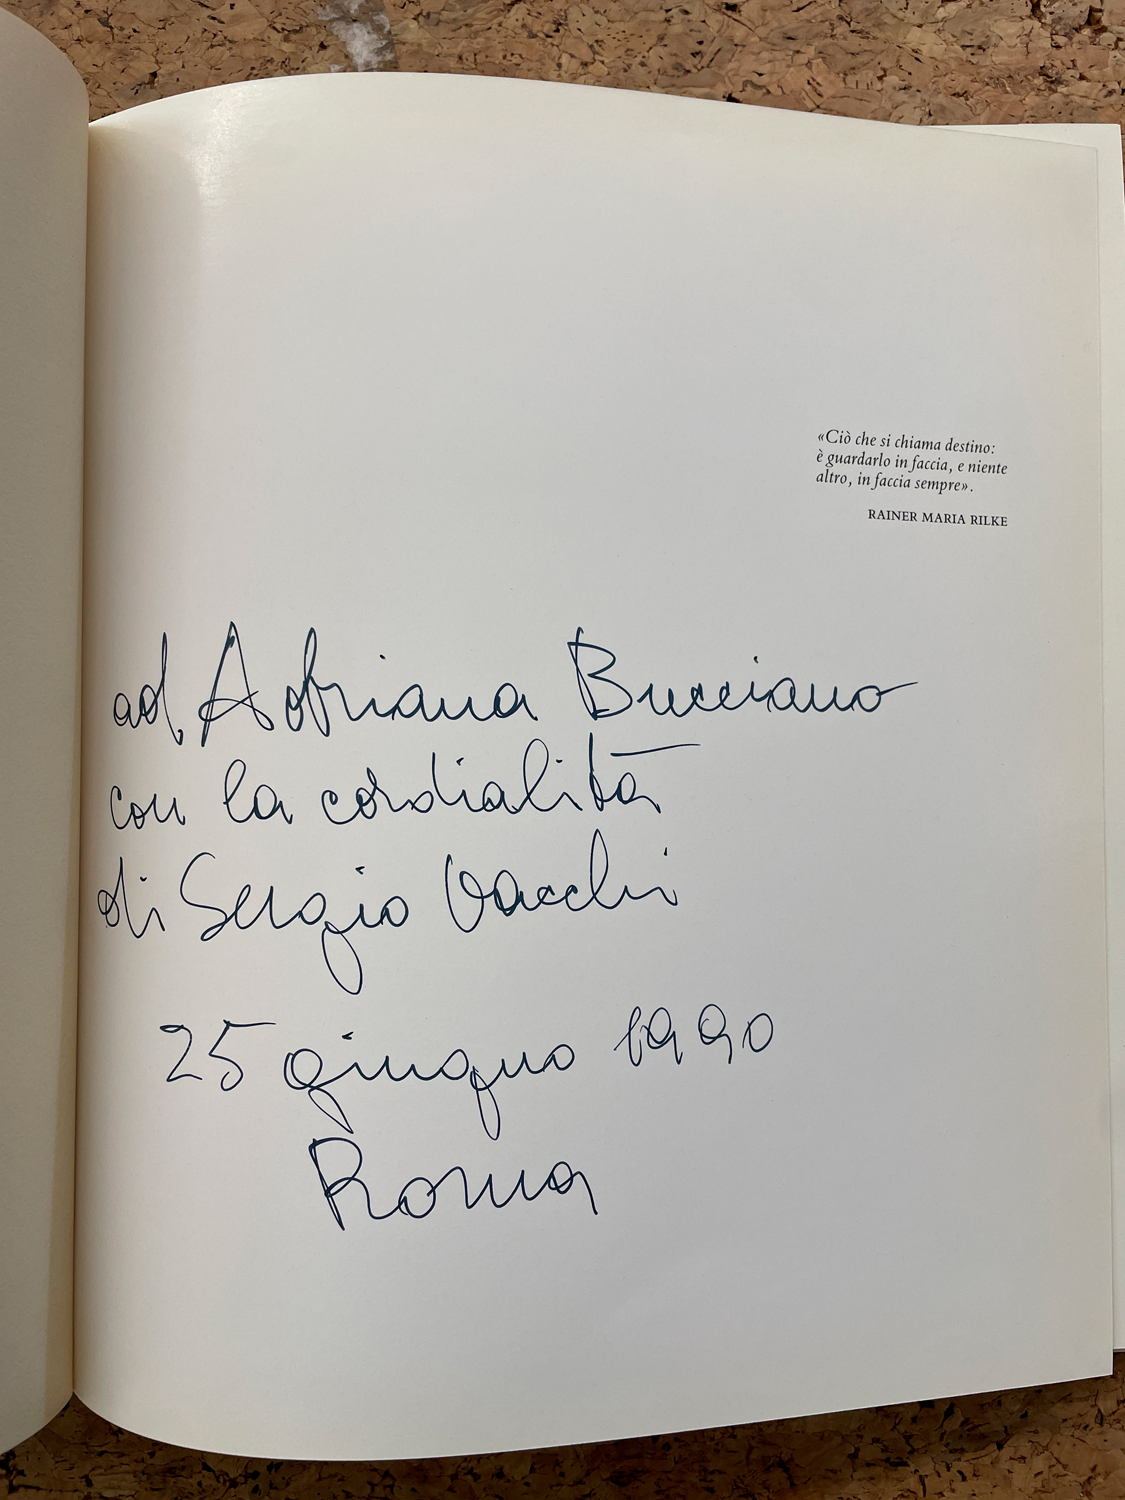 «Ciò che si chiama destino:
è guardarlo in faccia, e niente
altro, in faccia sempre».
RAINER MARIA RILKE
ad Adriana Bucciano
con la cordialità
di Sergio Vacchi
25 giugno 1990
Roma